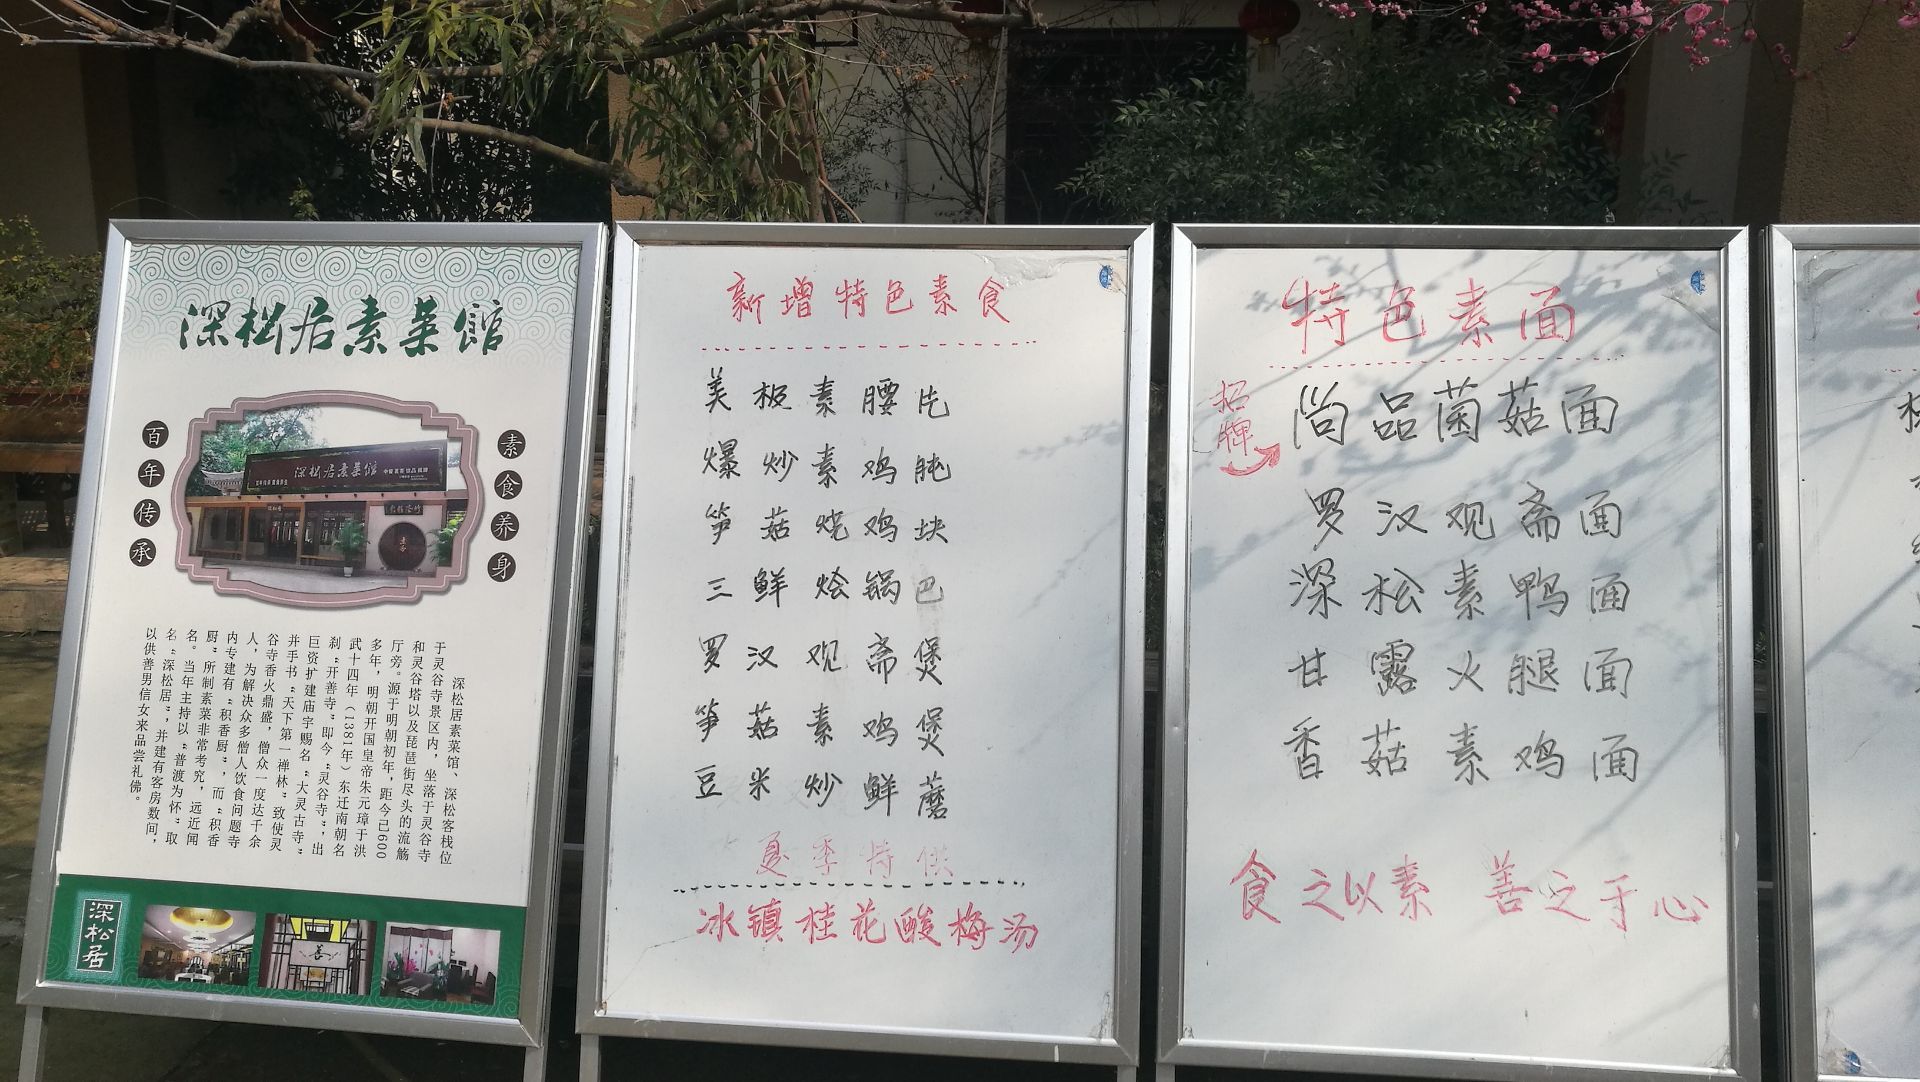 深松居素菜馆
百年传承
素食养身
深松居素菜馆
深松居素菜馆、深松客栈位
于灵谷寺景区内，坐落于灵谷寺
和灵谷塔以及琵琶街尽头的流觞
厅旁。源于明朝初年，距今已600
多年，明朝开国皇帝朱元璋于洪
武十四年（1381年）东迁南朝名
刹“开善寺”即今“灵谷寺”，出
巨资扩建庙宇赐名“大灵古寺”
并手书“天下第一禅林”致使灵
谷寺香火鼎盛，僧众一度达千余
人，为解决众多僧人饮食问题寺
内专建有“积香厨”，而“积香
厨”所制素菜非常考究，远近闻
名。当年主持以“普渡为怀”取
名“深松居”，并建有客房数间，
以供善男信女来品尝礼佛。
深松居
善
新增特色素食
美极素腰片
爆炒素鸡肫
笋菇烧鸡块
三鲜烩锅巴
罗汉观斋煲
笋菇素鸡煲
豆米炒鲜蘑
夏季特供
冰镇桂花酸梅汤
特色素面
招牌
尚品菌菇面
罗汉观斋面
深松素鸭面
甘露火腿面
香菇素鸡面
食之以素 善之于心